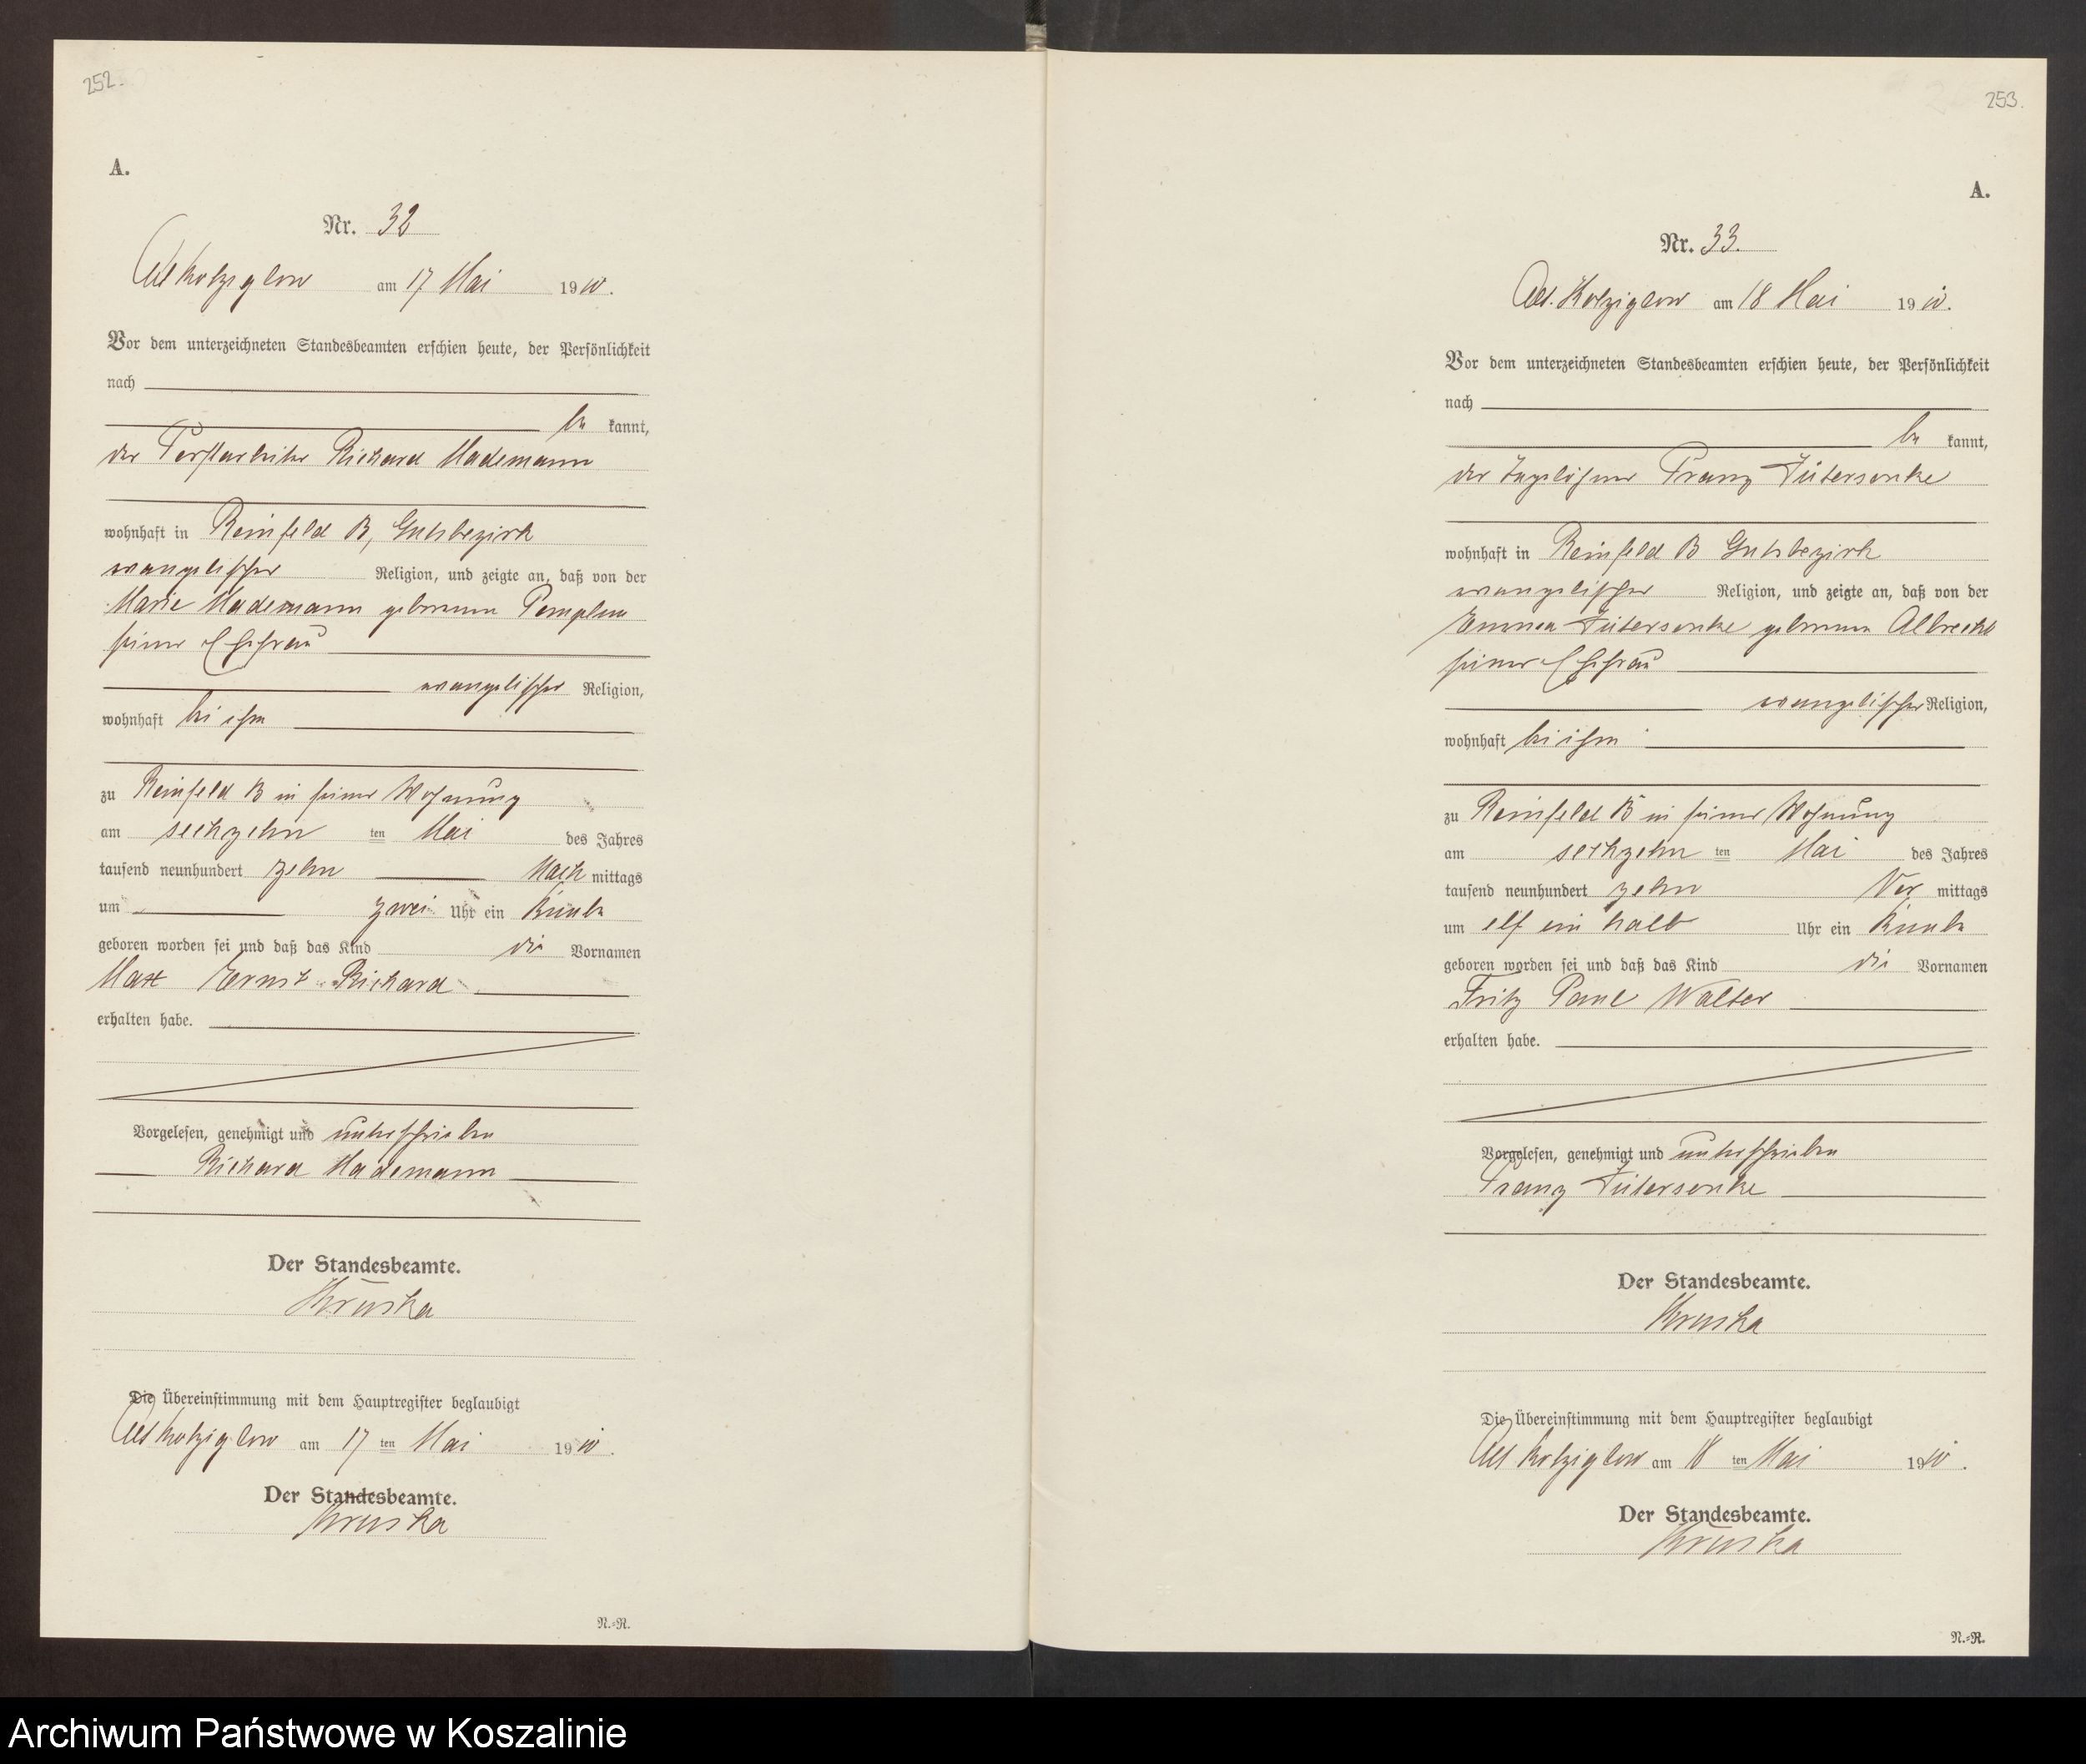 252.
A.
Nr. 32
Alt Kolziglow am 17 Mai 1910.
Vor dem unterzeichneten Standesbeamten erschien heute, der Persönlichkeit
nach
be kannt,
der Forstarbeiter Richard Mademann
wohnhaft in Reinfeld B, Gutsbezirk
evangelischer Religion, und zeigte an, daß von der
Marie Mademann geborenen Templin
seiner Ehefrau
evangelischer Religion,
wohnhaft bei ihm
zu Reinfeld B in seiner Wohnung
am sechzehn ten Mai des Jahres
tausend neunhundert zehn Nach mittags
um zwei Uhr ein Knabe
geboren worden sei und daß das Kind die Vornamen
Max Ernst Richard
erhalten habe.
Vorgelesen, genehmigt und unterschrieben
Richard Mademann
Der Standesbeamte.
Kruska
Die Übereinstimmung mit dem Hauptregister beglaubigt
Alt Kolziglow am 17 ten Mai 1910.
Der Standesbeamte.
Kruska
N.=R.
253.
A.
Nr. 33.
Alt. Kolziglow am 18 Mai 1910.
Vor dem unterzeichneten Standesbeamten erschien heute, der Persönlichkeit
nach
be kannt,
der Tagelöhner Franz Fütersenke
wohnhaft in Reinfeld B Gutsbezirk
evangelischer Religion, und zeigte an, daß von der
Emma Fütersenke geborenen Albrecht
seiner Ehefrau
evangelischer Religion,
wohnhaft bei ihm
zu Reinfeld B in seiner Wohnung
am sechzehn ten Mai des Jahres
tausend neunhundert zehn Vor mittags
um elf ein halb Uhr ein Knabe
geboren worden sei und daß das Kind die Vornamen
Fritz Paul Walter
erhalten habe.
Vorgelesen, genehmigt und unterschrieben
Franz Fütersenke
Der Standesbeamte.
Kruska
Die Übereinstimmung mit dem Hauptregister beglaubigt
Alt Kolziglow am 18 ten Mai 1910.
Der Standesbeamte.
Kruska
N.=R.
Archiwum Państwowe w Koszalinie